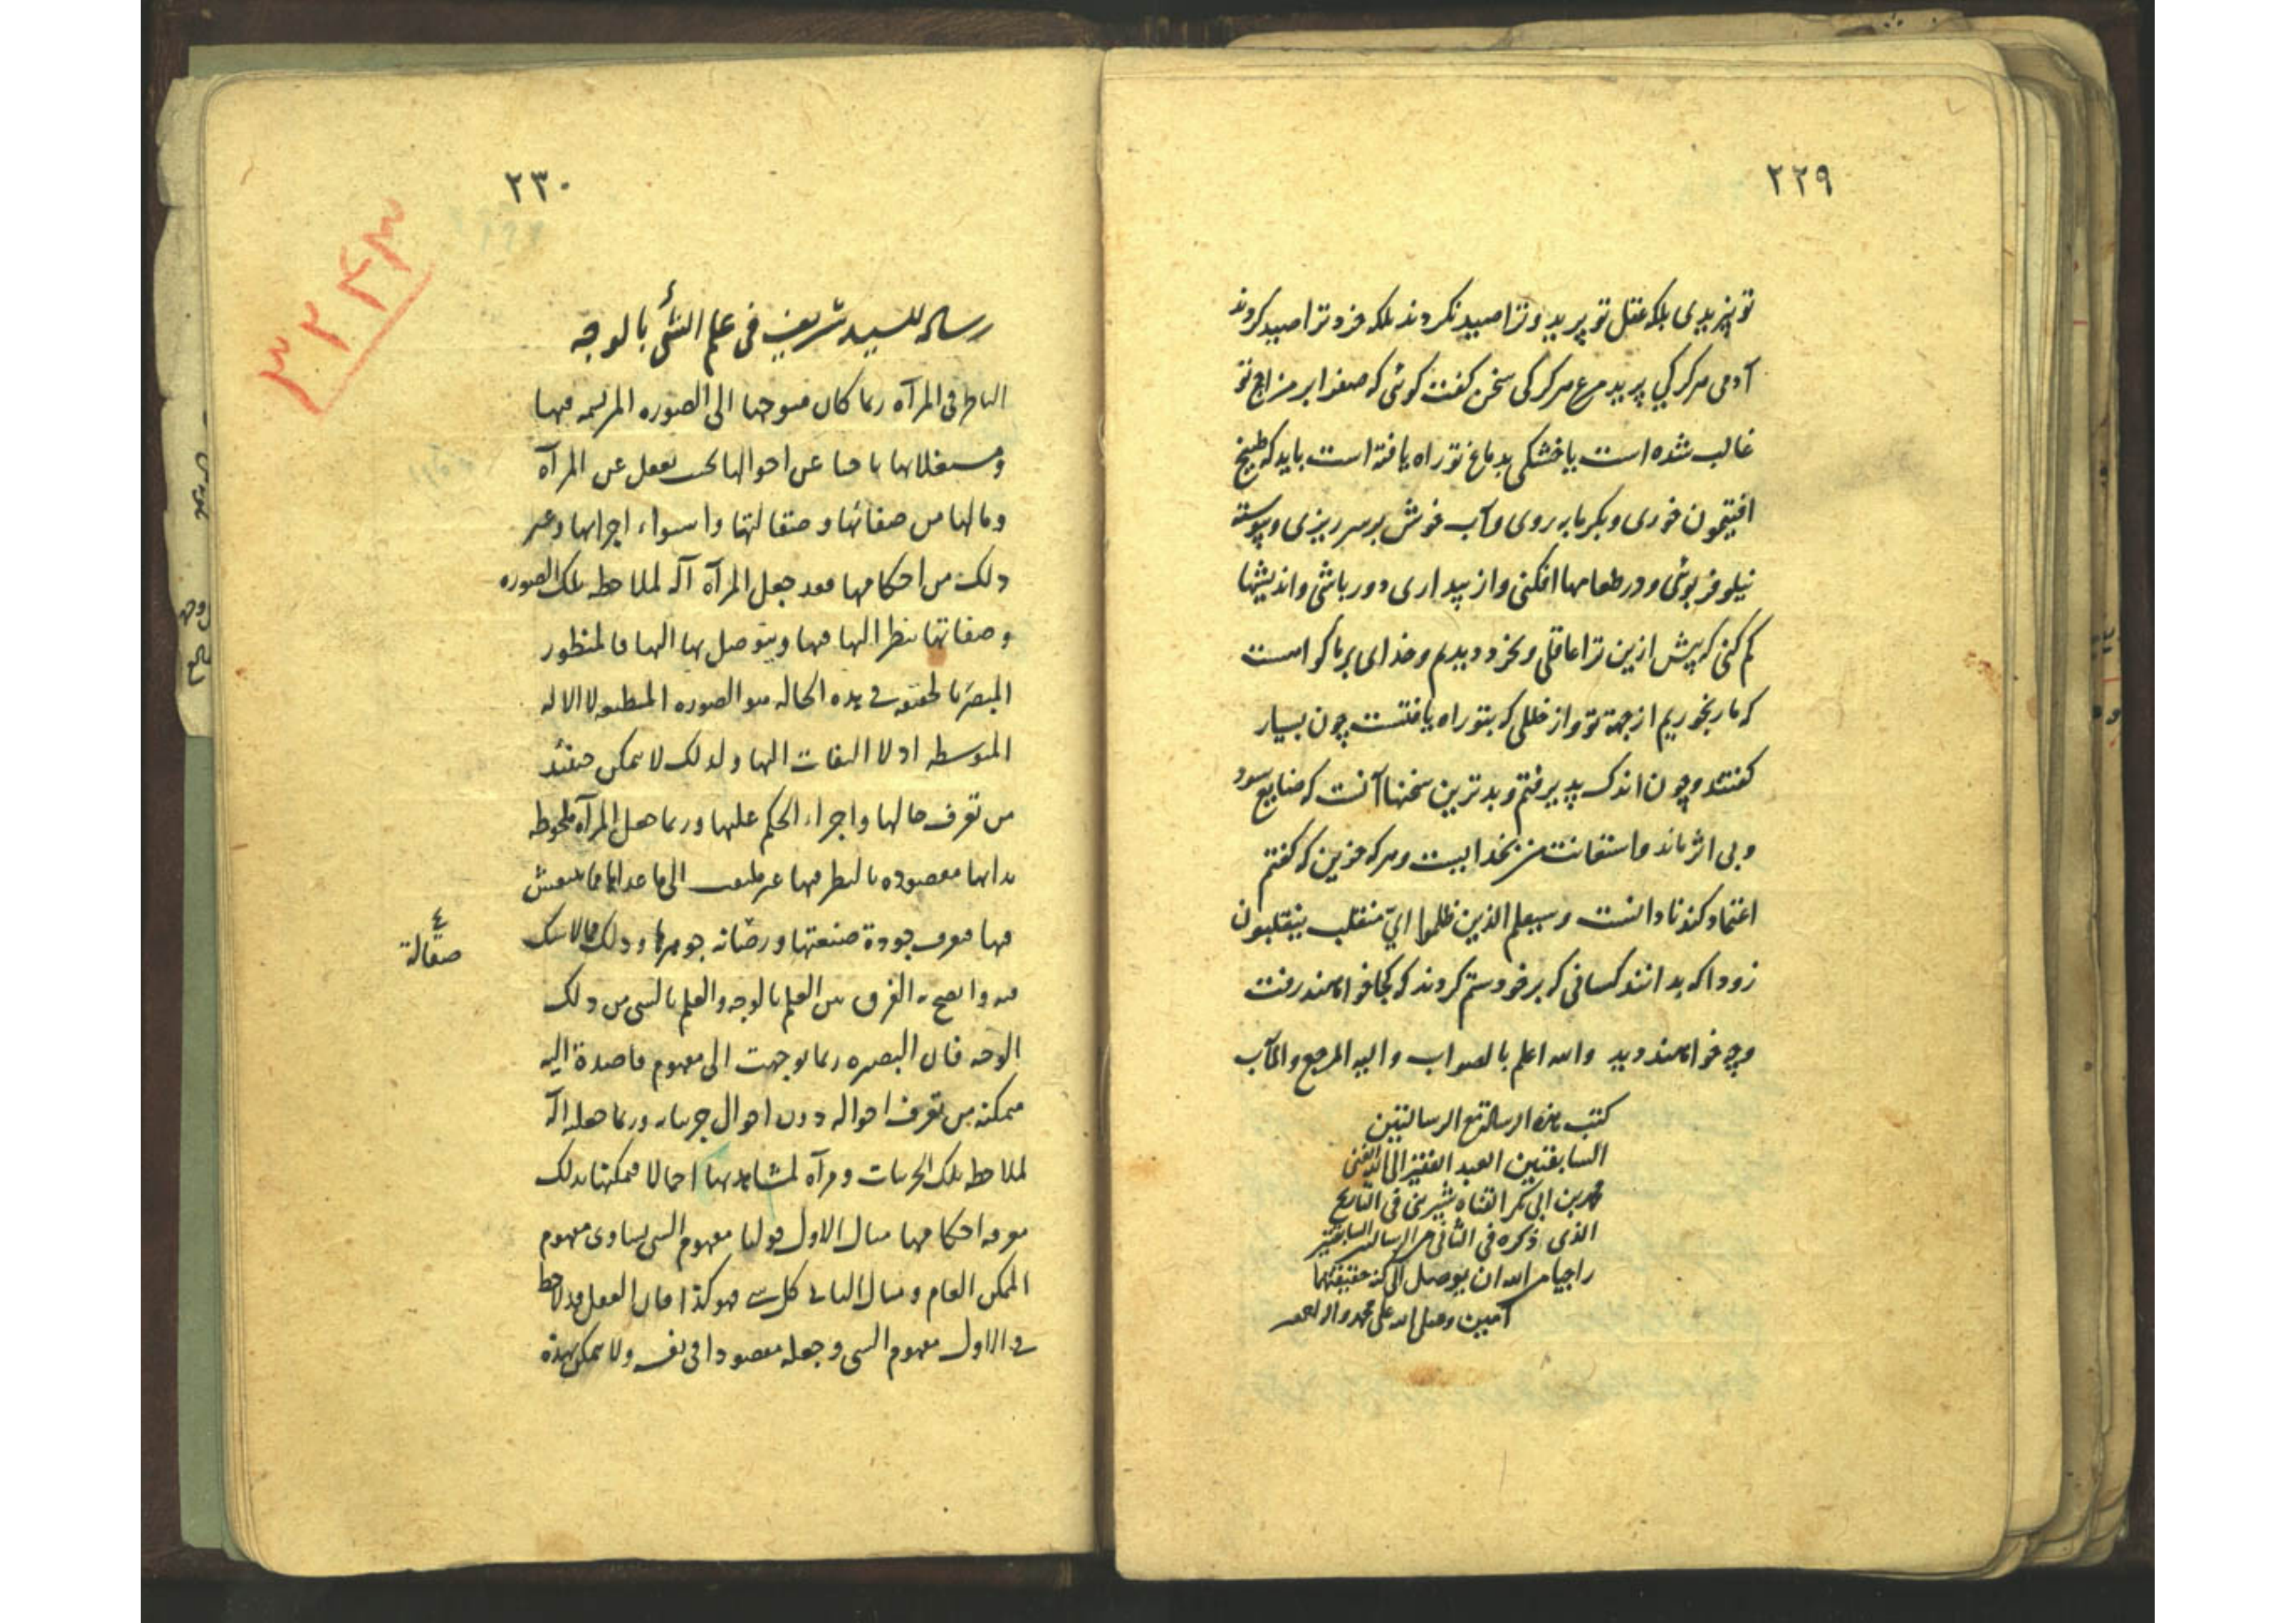 ٢٢٩
تو نپریدی بلکه عقل تو پرید و ترا صید نکردند بلکه خرد ترا صید کردند
آدمی هرگز کی پرید مرغ هرگز کی سخن گفت گوئی که صفرا بر مزاج تو
غالب شده است یا خشکی بدماغ تو راه یافته است باید که طبیخ
افتیمون خوری و بگرمابه روی و آب خوش بر سر ریزی و پیوسته
نیلوفر بوئی و در طعامها افکنی و از بیداری دور باشی و اندیشها
کم کنی که پیش ازین ترا عاقل و بخرد دیدیم و خدای بر ما گواست
که ما رنجوریم از جهة تو و از خللی که بتو راه یافتست چون بسیار
گفتند و چون اندک پذیرفتم و بدترین سخنها آنست که ضایع شود
و بی اثر ماند و استعانت من بخدایست و هر که جزین که گفتم
اعتقاد کند نادانست وسیعلم الذین ظلموا ای منقلب ینقلبون
زودا که بدانند کسانی که بر خود ستم کردند که کجا خواهند رفت
و چه خواهند دید والله اعلم بالصواب والیه المرجع والمآب
کتب هذه الرسالة مع الرسالتین
السابقتین العبد الفقیر الی الله الغنی
محمد بن ابی بکر القناه شیرینی فی التاریخ
الذی ذکره فی الثانی من الرسالتین السابقتین
راجیا من الله ان یوصل الی کنه حقیقتهما
آمین وصلی الله علی محمد وآله اجمعین
٢٣٠
٣٢٤٣
رساله للسید شریف فی علم الشئ بالوجه
الناظر فی المرآة ربما کان متوجها الی الصوره المرتسمه فیها
ومستقلا بها باحثا عن احوالها بحیث یغفل عن المرآة
وما لها من صفائها وصقالتها واستواء اجزائها وغیر
ذلک من احکامها فقد جعل المرآة آلة لملاحظة تلک الصوره
وصفاتها ینظر الیها فیها ویتوصل بها الیها فالمنظور
المبصر بالحقیقه فی هذه الحاله هو الصوره المنطبعه لا الاله
المتوسطه اذ لا التفات الیها ولذلک لا یمکن حینئذ
من تعرف حالها واجراء الحکم علیها وربما جعل المرآة ملحوظه
بذاتها مقصوده بالنظر فیها غیر ملتفت الی ما عداها مما ینتقش
فیها فیعرف جودة صنعتها ورصانه جوهرها وذلک مما لا شک
صقالة
فیه واتضح به الفرق بین العلم بالوجه والعلم بالشی من ذلک
الوجه فان البصیره ربما توجهت الی مفهوم قاصدة الیه
متمکنه من تعرف احواله دون احوال جزئیاته وربما جعلته آلة
لملاحظه تلک الجزئیات ومرآة لمشاهدتها اجمالا فیمکنها بذلک
معرفه احکامها مثال الاول قولنا مفهوم الشی یساوی مفهوم
الممکن العام ومثال الثانی کل شی فهو کذا فان العقل قد لاحظ
فی الاول مفهوم الشی وجعله مقصودا فی نفسه ولا یمکن بهذه